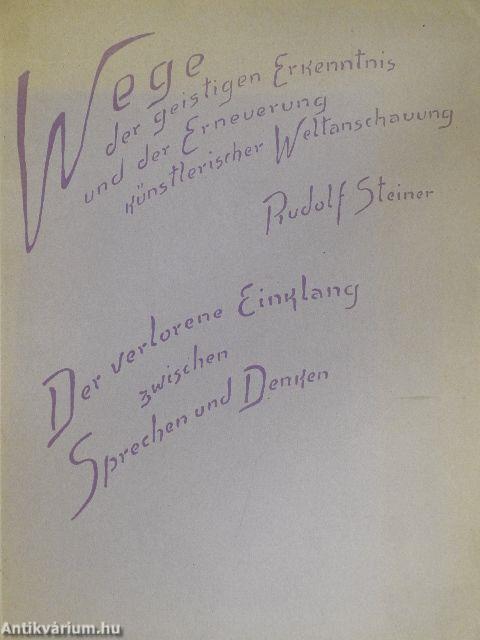 Wege
der geistigen Erkenntnis
und der Erneuerung
künstlerischer Weltanschauung
Rudolf Steiner
Der verlorene Einklang
zwischen
Sprechen und Denken
Antikvárium.hu